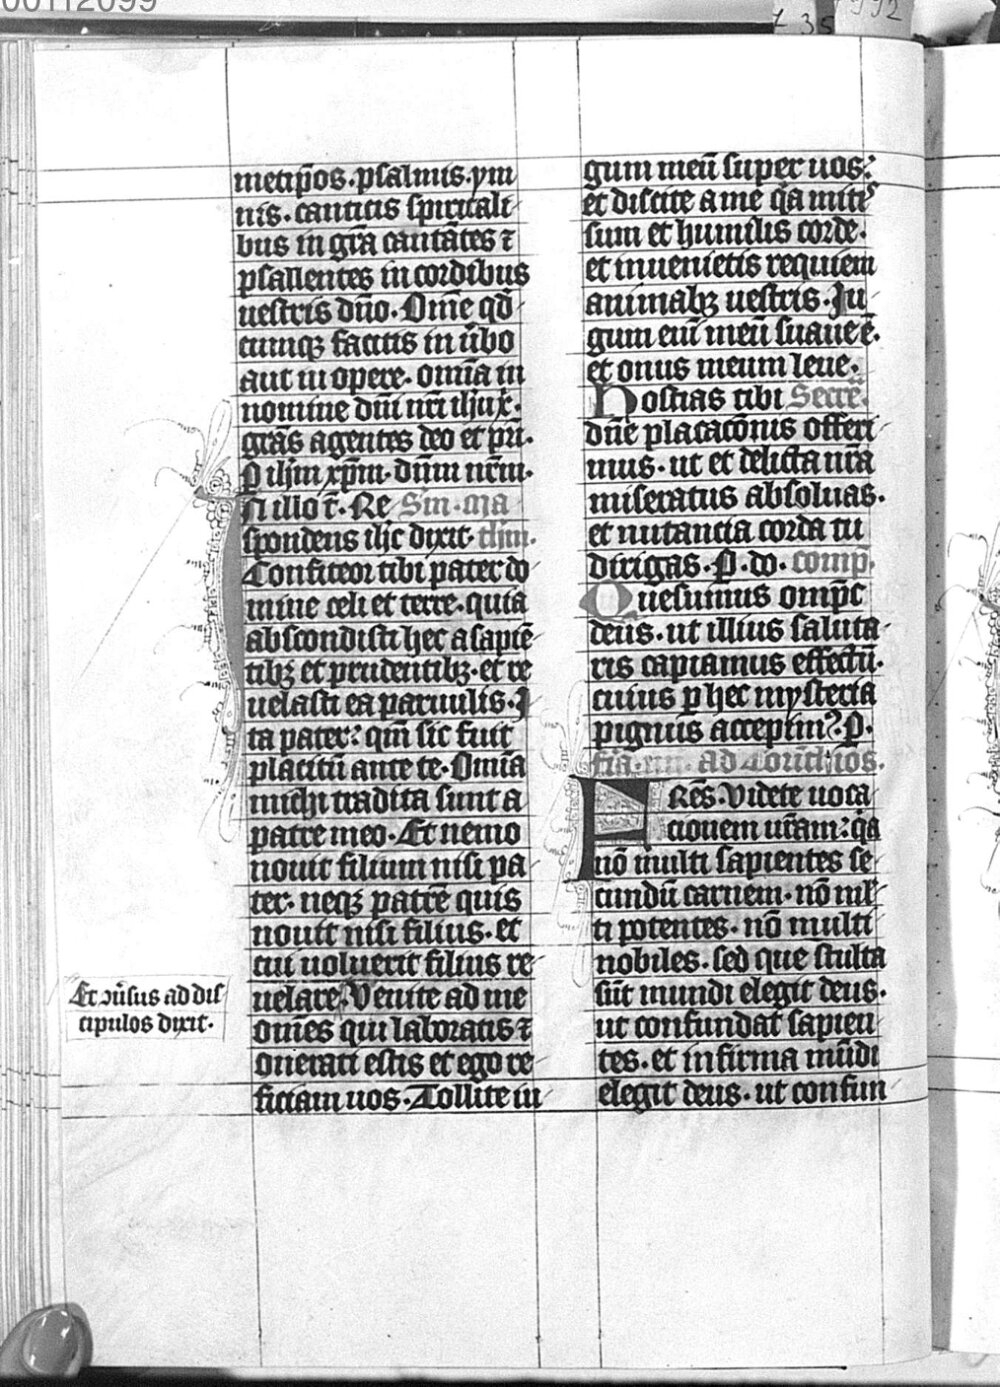 metip̄os. psalmis. ym
nis. canticis spirituali
bus in gr̄a cantātes ⁊
psallentes in cordibus
uestris dn̄o. Om̄e qd̄
cumqꝫ facitis in ūbo
aut in opere. omīa in
nomine dn̄i nr̄i ihū xp̄.
grās agentes deo et pr̄i.
P ihm̄ xp̄m. dn̄m nr̄m.
In illo t̄. Re Sm̄. ma
spondens ihc̄ dixit. thm̄.
Confiteor tibi pater do
mine celi et terre. quia
abscondisti hec a sapiē
tibꝫ et prudentibꝫ. et re
uelasti ea paruulis. I
ta pater: qm̄ sic fuit
placitū ante te. Omīa
michi tradita sunt a
patre meo. Et nemo
nouit filium nisi pa
ter. neqꝫ patrē quis
nouit nisi filius. et
cui uoluerit filius re
uelare. Venite ad me
om̄es qui laboratis ⁊
onerati estis et ego re
ficiam uos. Tollite iu
Et ꝯūsus ad dis
cipulos dixit.
gum meū super uos:
et discite a me q̄a mitis
sum et humilis corde.
et inuenietis requiem
animabꝫ uestris. Iu
gum eni᷒ meū suaue ē.
et onus meum leue.
Hostias tibi Secre᷒.
dn̄e placacōnis offeri
mus. ut et delicta nr̄a
miseratus absoluas.
et nutancia corda tu
dirigas. P. do. comp̄.
Quesumus omp̄c
deus. ut illius saluta
ris capiamus effectū.
cuius p hec mysteria
pignus accepim᷒. P.
fīa. iiii. ad Corinthios.
FRēs. Videte uoca
cionem ur̄am: q̄a
nō multi sapientes se
cundū carnem. nō ml̄
ti potentes. nō multi
nobiles. sed que stulta
sūt mundi elegit deus.
ut confundat sapien
tes. et infirma mūdi
elegit deus. ut confun